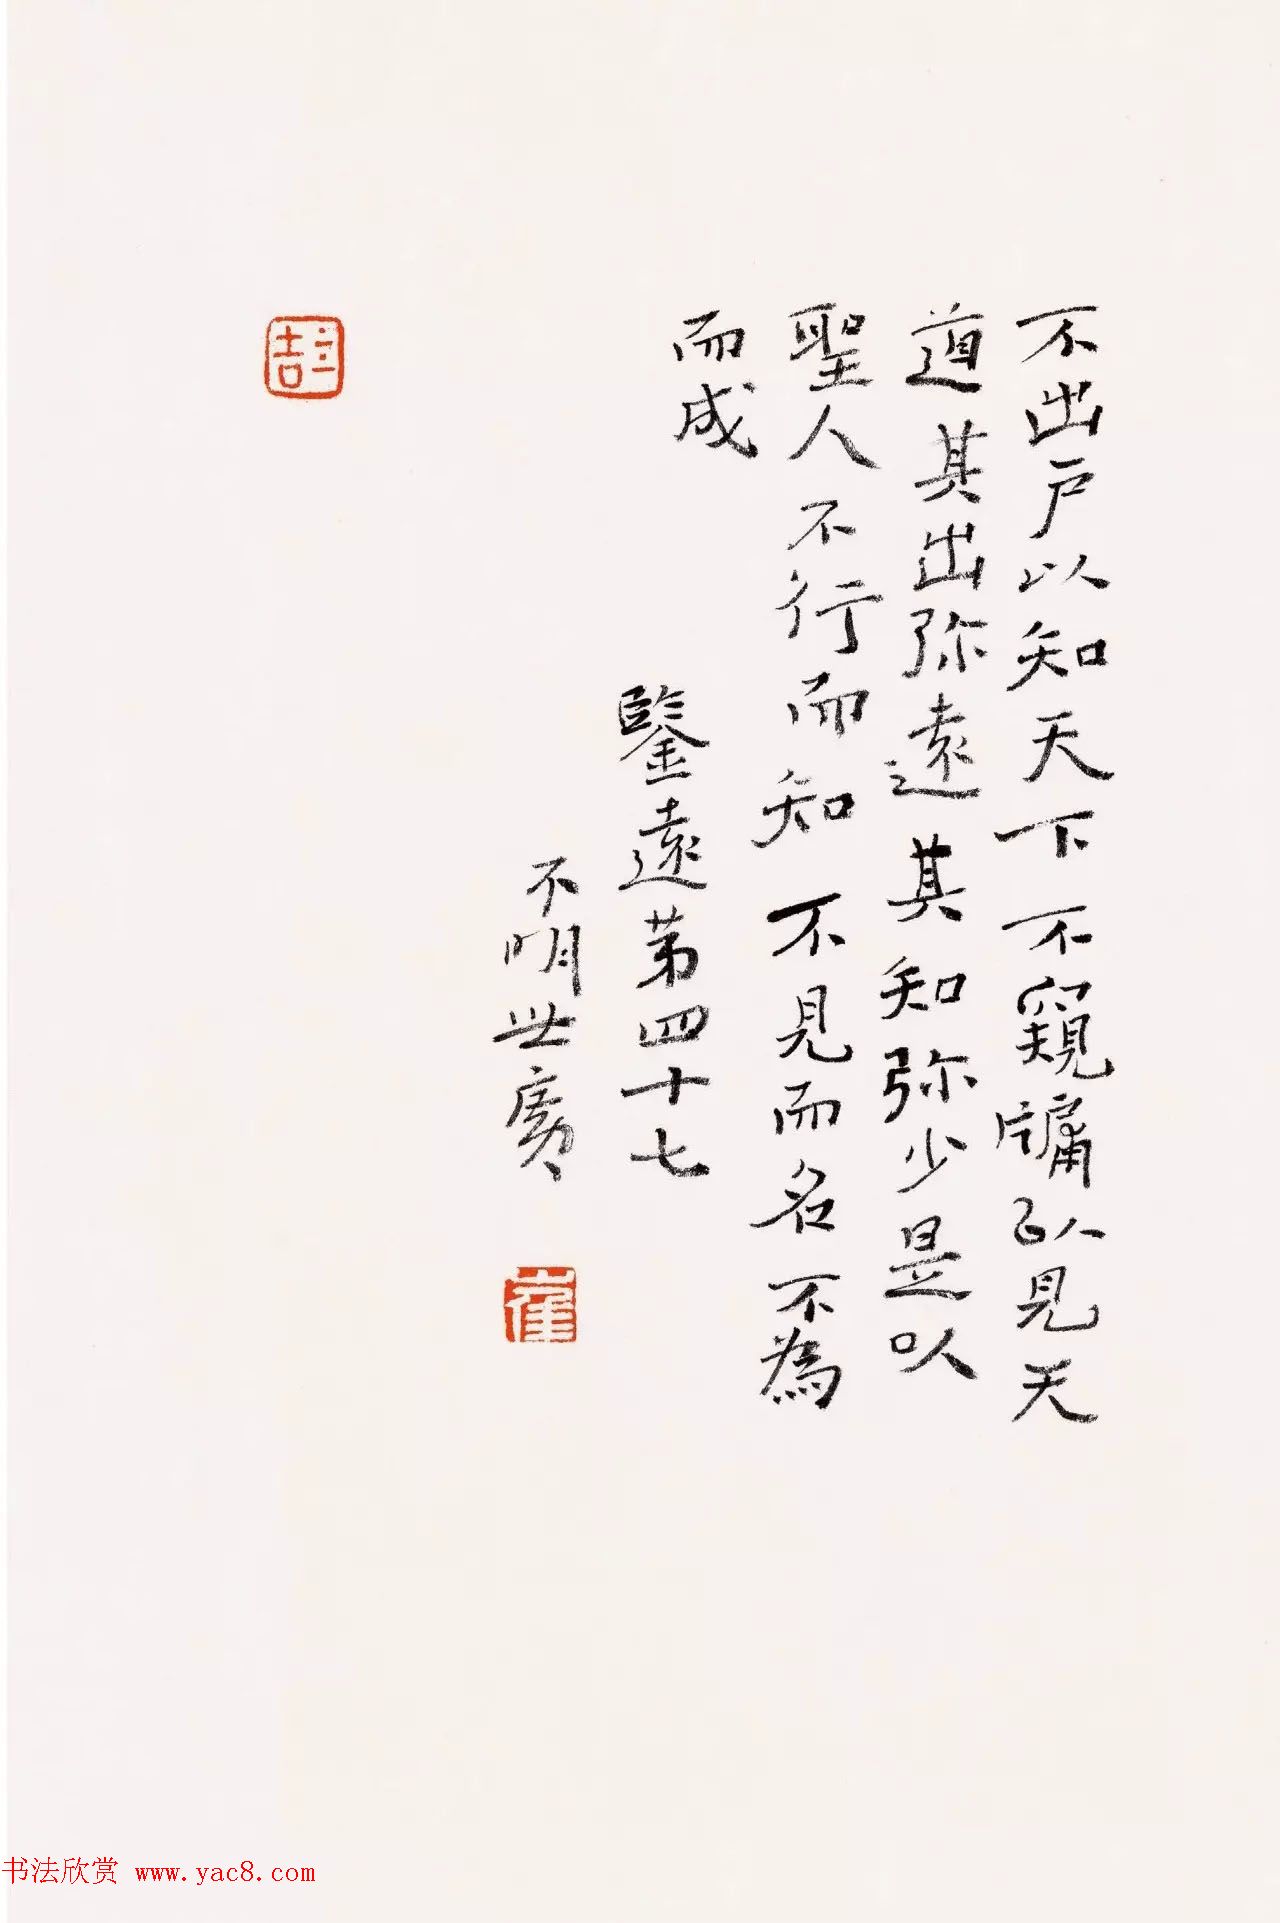 不出户以知天下不窺牖以見天
道其出弥遠其知弥少是以
聖人不行而知不見而名不為
而成
鑒遠第四十七
不明世廣
崔
書法欣赏 www.yac8.com